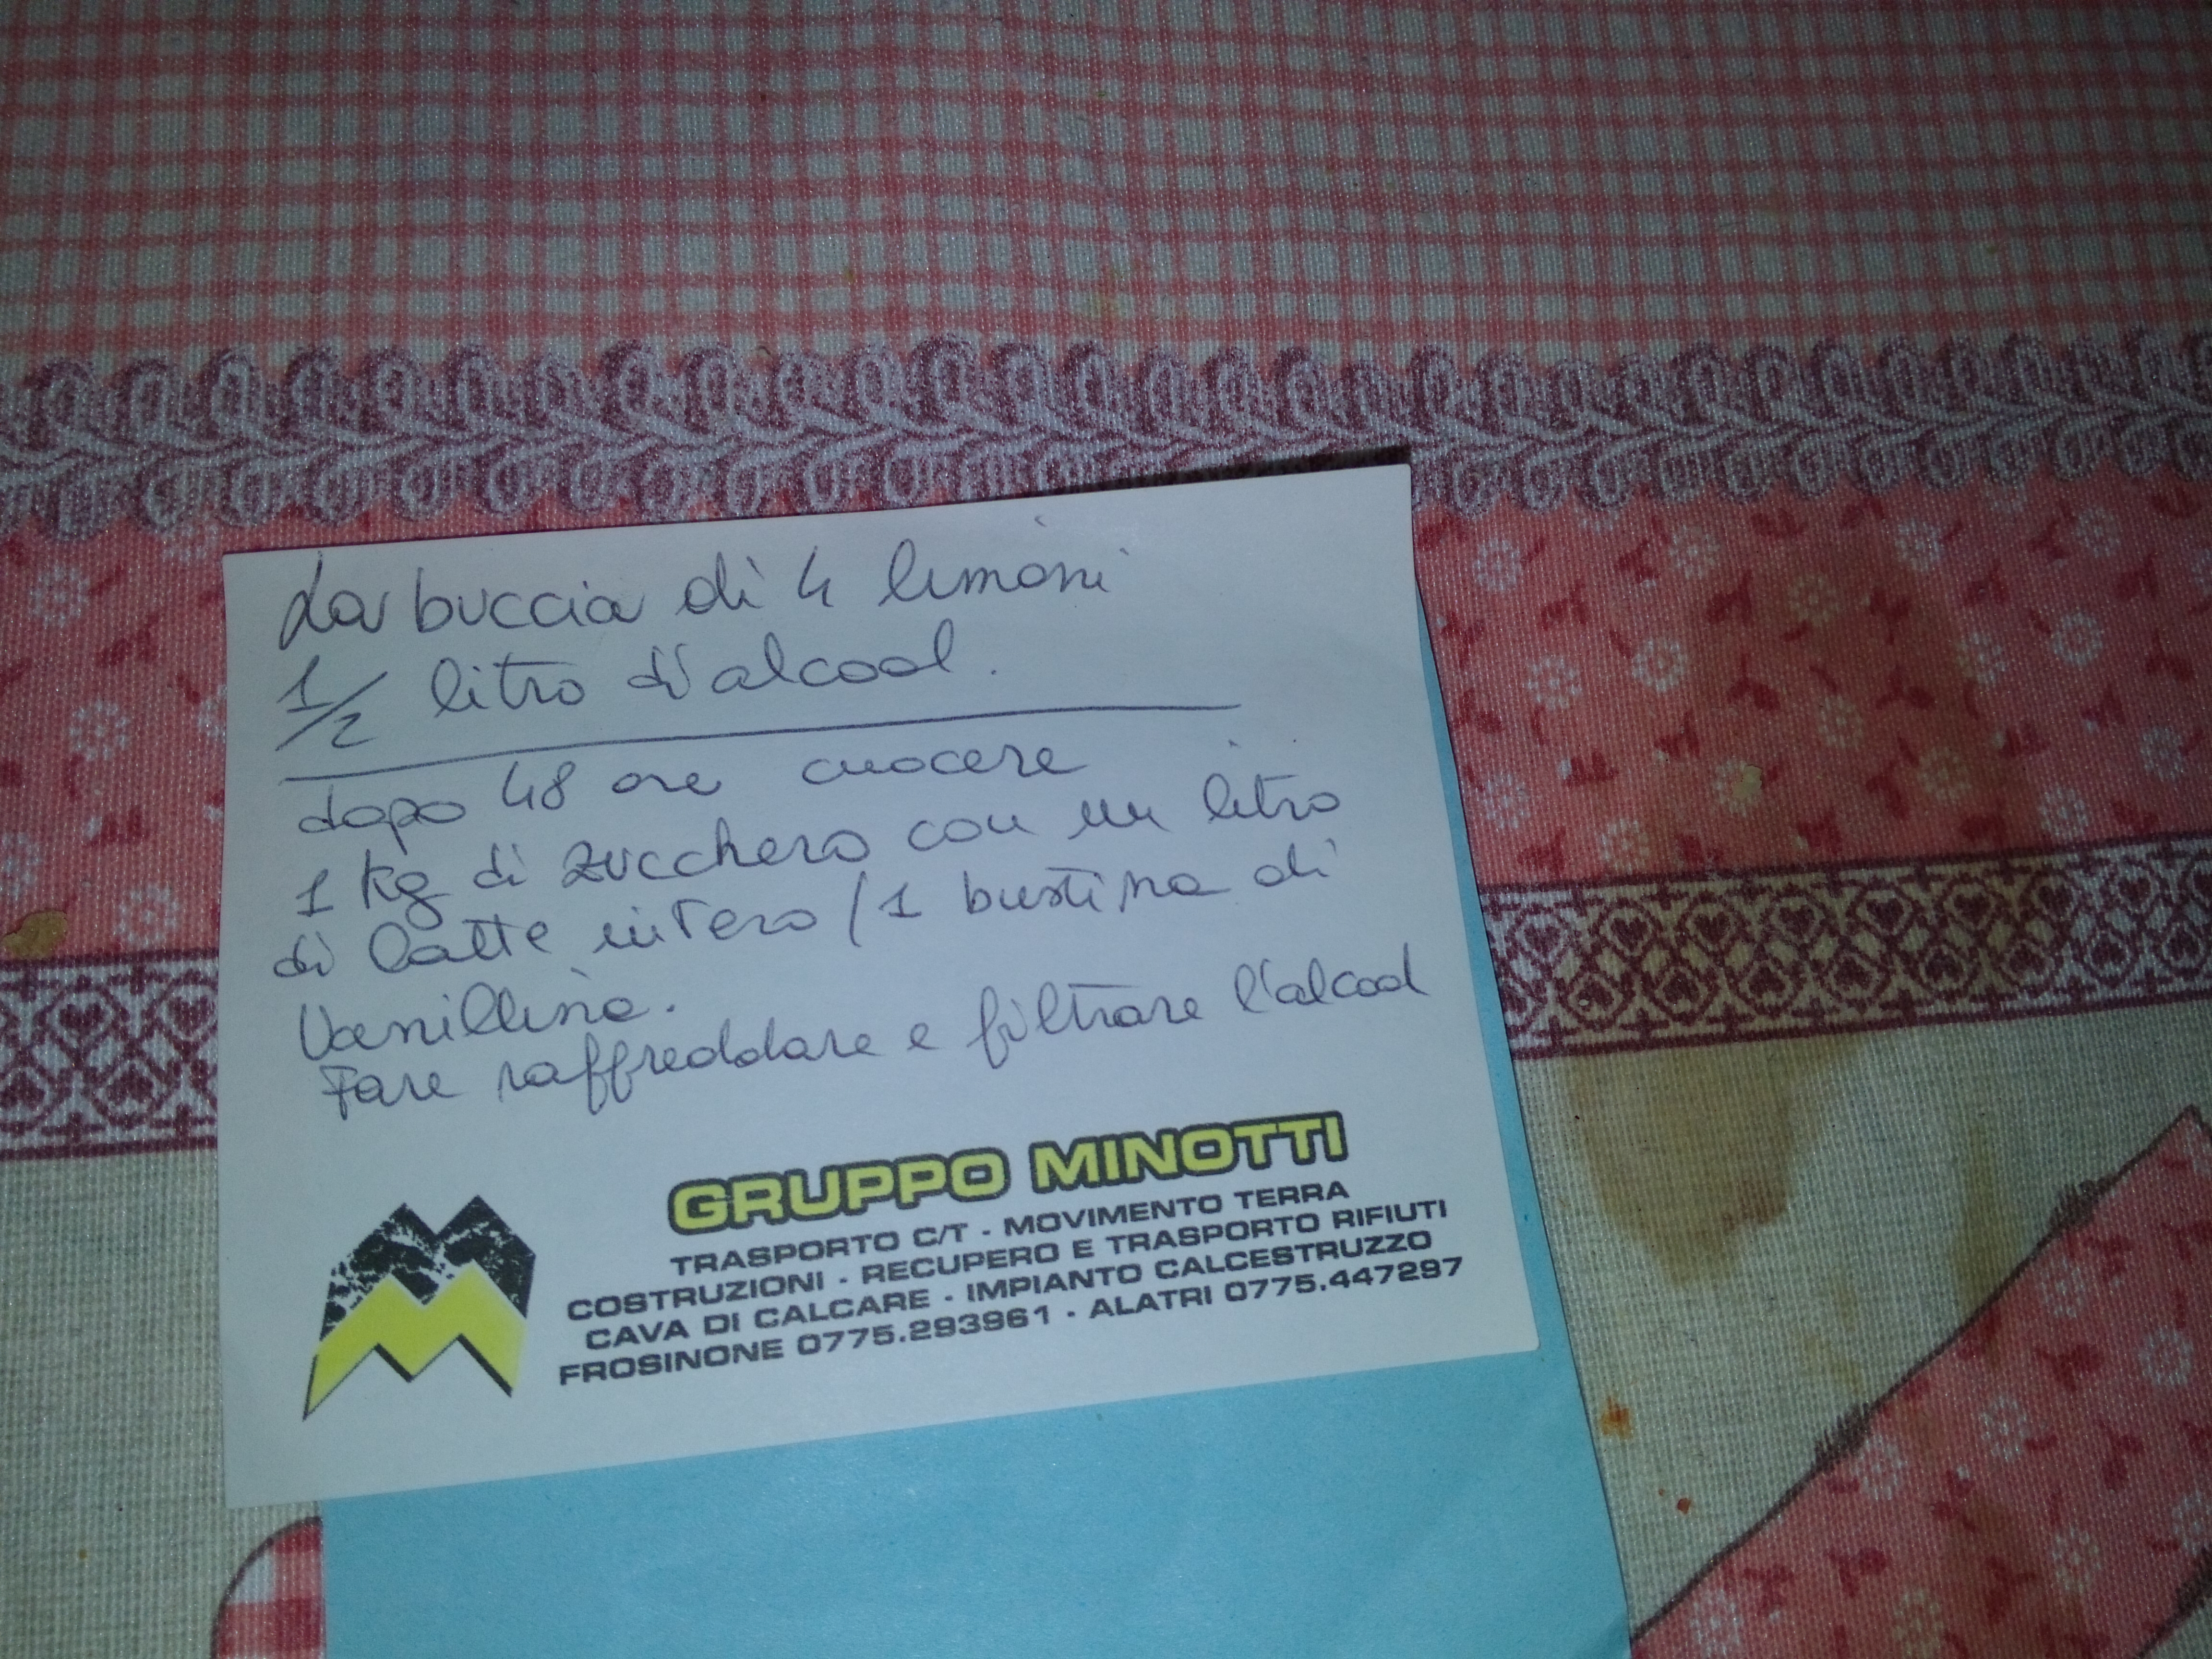 La buccia di 4 limoni
1/2 litro d'alcool.
dopo 48 ore cuocere
1 kg di zucchero con un litro
di latte intero / 1 bustina di
Vanillina.
Fare raffreddare e filtrare l'alcool
GRUPPO MINOTTI
TRASPORTO C/T - MOVIMENTO TERRA
COSTRUZIONI - RECUPERO E TRASPORTO RIFIUTI
CAVA DI CALCARE - IMPIANTO CALCESTRUZZO
FROSINONE 0775.293961 - ALATRI 0775.447297